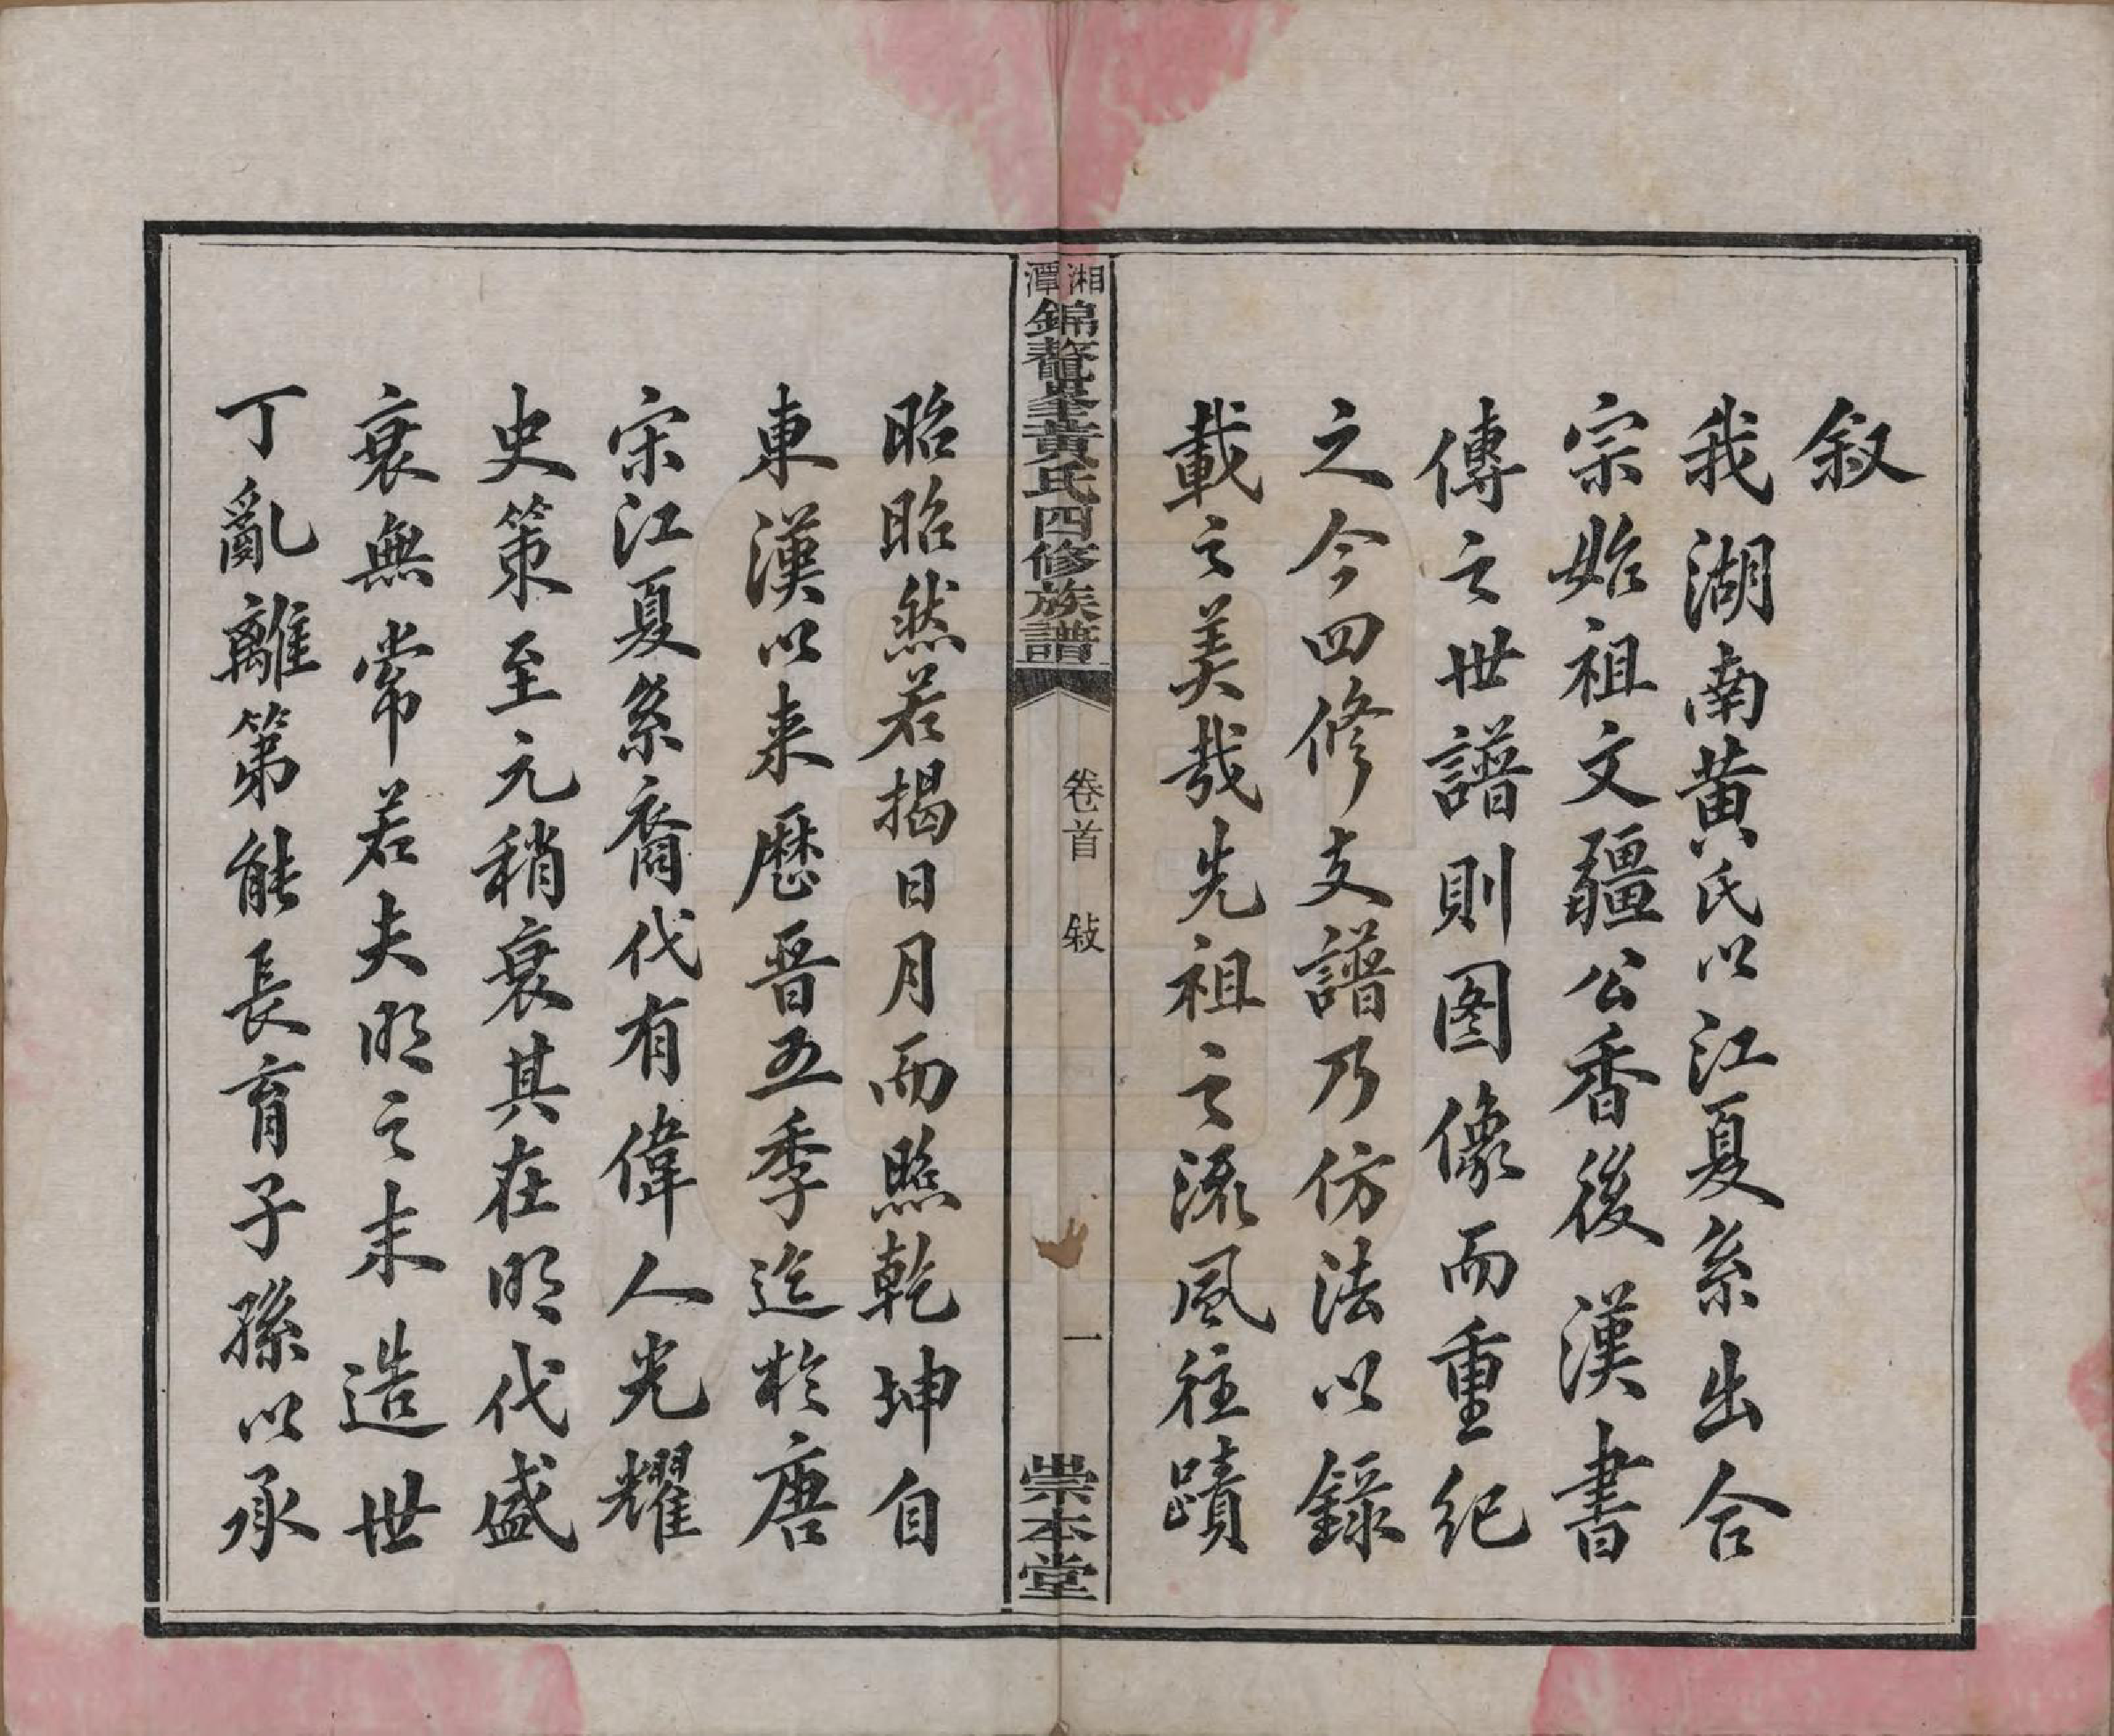 叙
我湖南黄氏以江夏系出合
宗始祖文疆公香後漢書
傳之世譜則图像而重纪
之今四修支譜乃仿法以録
載之美哉先祖之流風往蹟
湘潭錦鼇㘲黄氏四修族譜
卷首 敍 一
崇本堂
昭昭然若揭日月而照乾坤自
東漢以来歷晋五季迄於唐
宋江夏系裔代有偉人光耀
史策至元稍衰其在明代盛
衰無常若夫明之末造世
丁亂離第能長育子孫以承